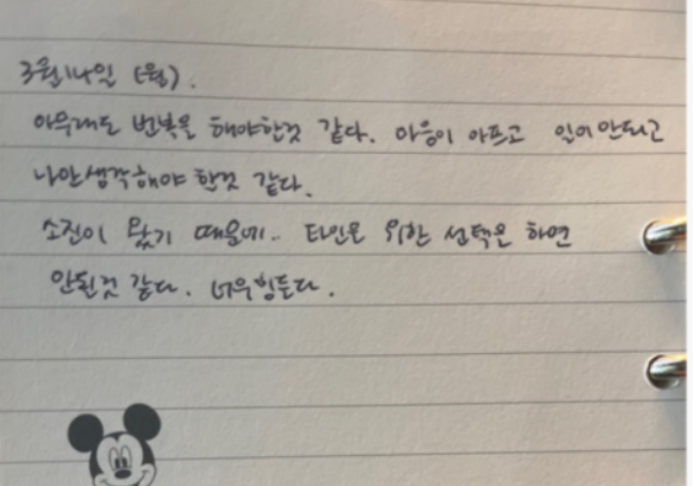 3월 14일 (월).
아무래도 번복을 해야한것 같다. 마음이 아프고 일이 안되고
나만 생각해야 한것 같다.
소진이 왔기 때문에.. 타인을 위한 선택은 하면
안될것 같다. 너무 힘든다.